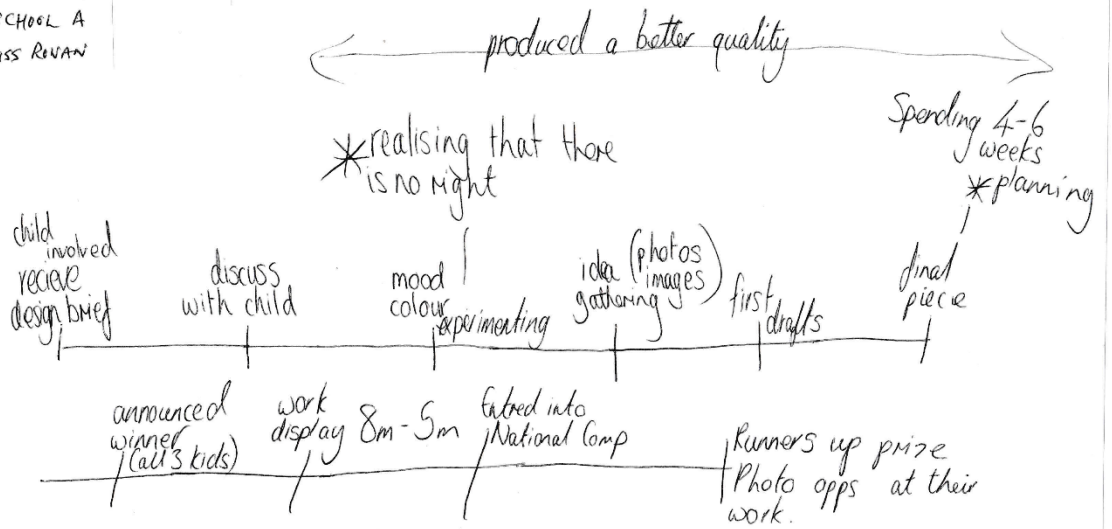 CHOOL A
ISS RONAN
produced a better quality
Spending 4-6
weeks
*planning
*realising that there
is no right
child
involved
recieve
design brief
discuss
with child
mood
colour
experimenting
idea (photos
images)
gathering
first
drafts
final
piece
announced
winner
(all 3 kids)
work
display 8m-5m
Entred into
National Comp
Runners up prize
Photo opps at their
work.